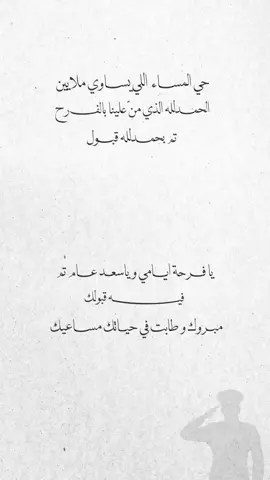 حي المساء اللي يساوي ملايين
الحمدلله الذي منّ علينا بالفرح
تم بحمدلله قبول
يا فرحة ايامي وياسعد عام تم
فيه قبولك
مبروك وطابت في حياتك مساعيك